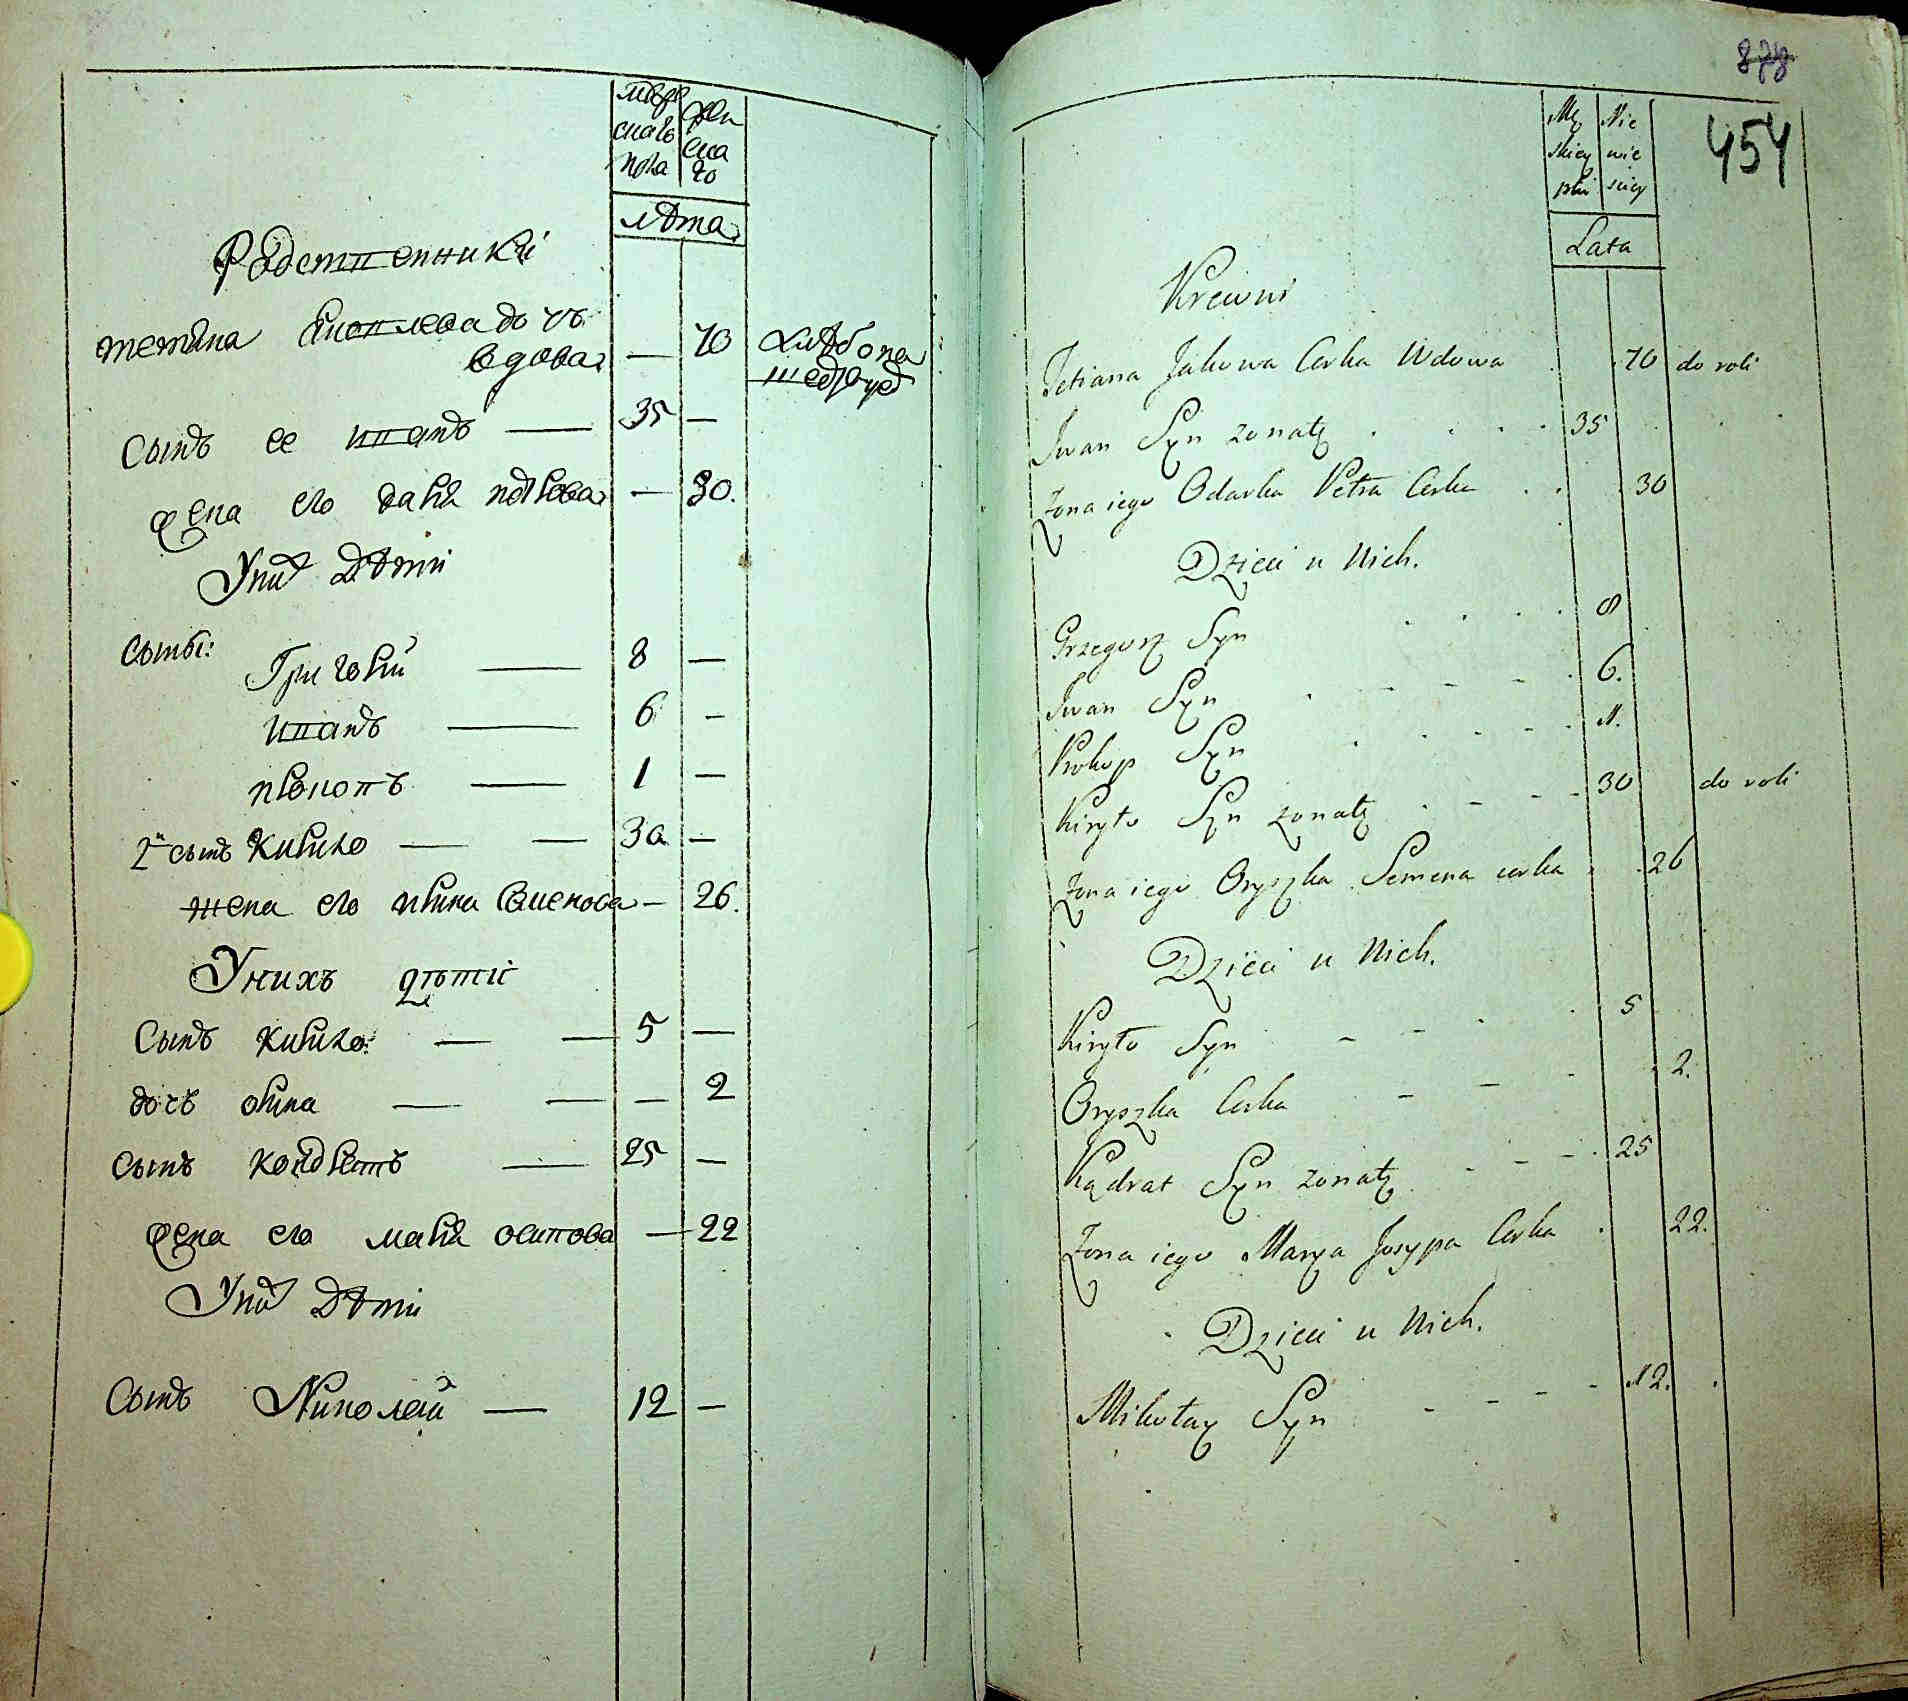 мужс
скаго
пола
жен
ска
го
лѣта
Родственники
тетяна яковлева дочь
вдова — 70 хлѣбопа
шедруд
сынъ ее иванъ — 35 —
жена его дарья петрова — 30.
У них дѣти
сыны:
Григорий — 8 —
иванъ — 6 —
прокопъ — 1 —
2й сынъ кирило — — 30 —
жена его ирина семенова — 26.
У нихъ дѣти
Сынъ кирило: — — 5 —
дочь орина — — — 2
сынъ кондратъ — 25 —
жена его марья осипова — 22
У них дѣти
Сынъ Николай — 12 —
878
454
Mę
skiey
płci
Nie
wie
sciey
Lata
Krewni
Tetiana Jakowa Corka Wdowa 70 do roli
Iwan Syn zonaty 35
Zona iego Odarka Petra Corka 30
Dzieci u Nich.
Grzegorz Syn 8
Iwan Syn 6.
Prokop Syn 1.
Kiryło Syn zonaty 30 do roli
Zona iego Oryszka Semena corka 26
Dzieci u Nich.
Kiryło Syn 5
Oryszka Corka 2.
Kądrat Syn zonaty 25
Zona iego Marya Josypa Corka 22.
Dzieci u Nich.
Mikołay Syn 12.